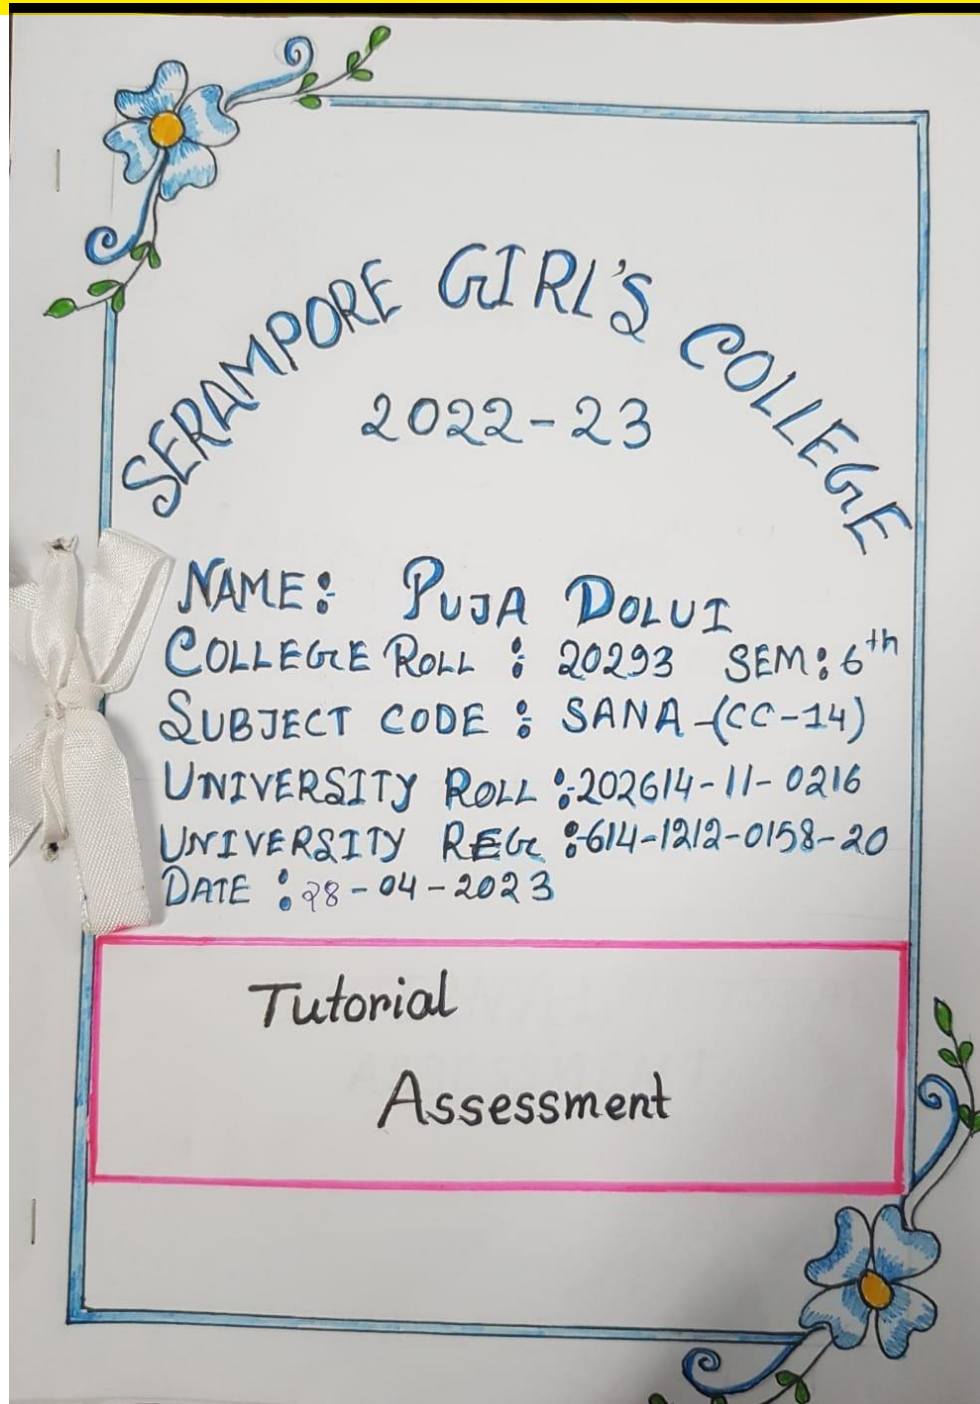 SERAMPORE GIRL'S COLLEGE
2022-23
NAME: PUJA DOLUI
COLLEGE ROLL : 20293 SEM: 6th
SUBJECT CODE : SANA-(CC-14)
UNIVERSITY ROLL :-202614-11-0216
UNIVERSITY REG :-614-1212-0158-20
DATE : 28-04-2023
Tutorial
Assessment